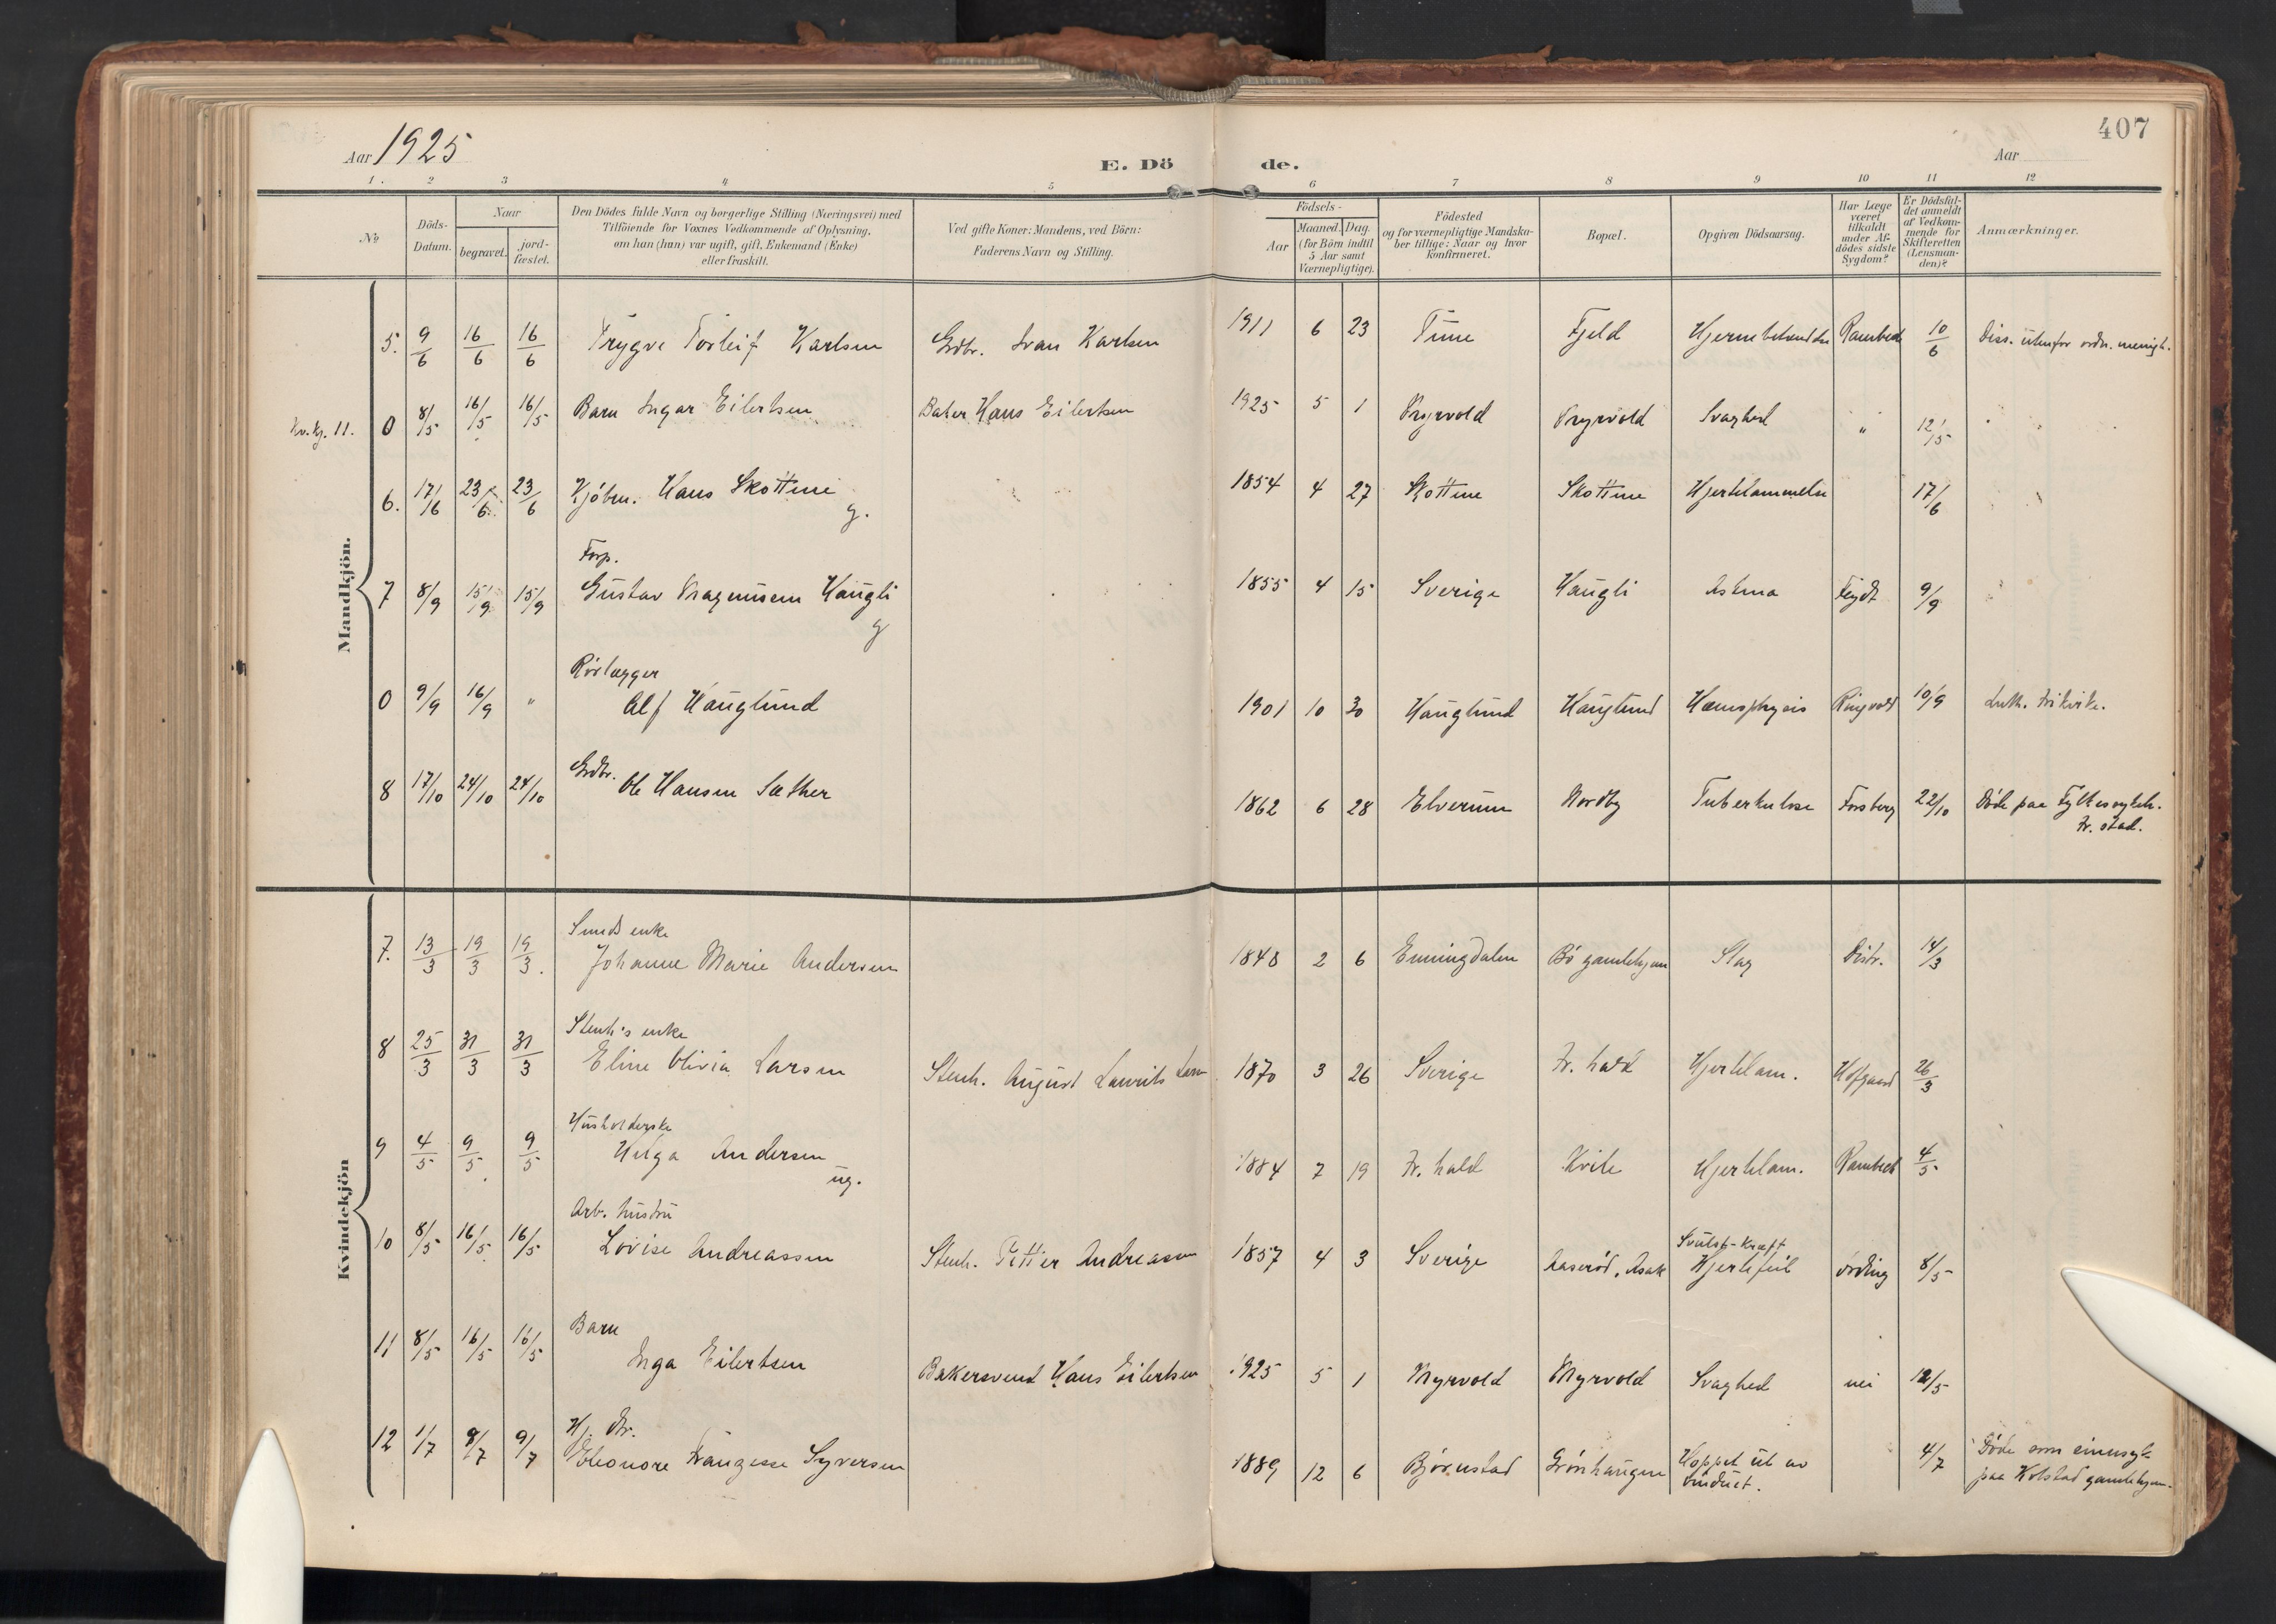 407
Aar 1925
E. Dö de.
Aar
1. 2 3 4 5 6 7 8 9 10 11 12
No
Döds-Datum.
Naar
begravet.
jord-fæstet.
Den Dödes fulde Navn og borgerlige Stilling (Næringsvei) med
Tilföiende for Voxnes Vedkommende af Oplysning,
om han (hun) var ugift, gift, Enkemand (Enke)
eller fraskilt.
Ved gifte Koner: Mandens, ved Börn:
Faderens Navn og Stilling.
Födsels-
Aar
Maaned. Dag.
(for Börn indtil
5 Aar samt
Værnepligtige).
Födested
og for værnepligtige Mandska-
ber tillige: Naar og hvor
konfirmeret.
Bopæl.
Opgiven Dödsaarsag.
Har Læge
været
tilkaldt
under Af-
dödes sidste
Sygdom?
Er Dödsfal-
det anmeldt
af Vedkom-
mende for
Skifteretten
(Lensman-
den)?
Anmærkninger.
Mandkjön.
5. 9/6 16/6 16/6 Trygve Torleif Karlsen Grdbr. Ivan Karlsen 1911 6 23 Tune Fjeld Rambech 10/6 Diss. utenfor ordn. menigh.
Kv.kj. 11. 0 8/5 16/5 16/5 Barn Ingar Eilertsen Baker Hans Eilertsen 1925 5 1 Myrvold Myrvold Svaghed " 12/5 "
6. 17/6 23/6 23/6 Kjöbm. Hans Skottene g. 1854 4 27 Skottene Skottene Hjertelammelse 17/6
Forp.
7 8/9 15/9 15/9 Gustav Magnussen Haugli g 1855 4 15 Sverige Haugli Astma 9/9
Rörlægger
0 9/9 16/9 " Alf Hauglund 1901 10 30 Hauglund Hauglund Ringvold 10/9 Luth. frikirke.
8 17/10 24/10 24/10 Grdbr. Ole Hansen Sæther 1862 6 28 Elverum Nordby Tuberkulose Forsberg 22/10 Döde paa Fylkessykeh.
Fr. stad.
Kvindekjön
Smeds enke
7. 13/3 19/3 19/3. Johanne Marie Andersen 1848 2 6 Enningdalen Bö gamlehjem Slag Distr. 14/3
Stenh's enke
8 25/3 31/3 31/3 Eline Olivia Larsen Stenh. August Laurits Larsen 1870 3 26 Sverige Fr. hald Hjertelam. Hofgaard 26/3
Husholderske
9 4/5 9/5 9/5 Helga Andersen ug. 1884 7 19 Fr. hald Hvile Hjertelam. Rambech 4/5
Arb. hustru
10 8/5 16/5 16/5 Lovise Andreassen Stenh. Petter Andreassen 1857 4 3 Sverige Aaseröd, Asak Svulst-Kræft
Hjertefeil Örding 8/5
Barn
11 8/5 16/5 16/5 Inga Eilertsen Bakersvend Hans Eilertsen 1925 5 1 Myrvold Myrvold Svaghed nei 12/5
Hj. dtr.
12 1/7 9/7 9/7 Eleonore Syversen 1889 12 6 Björnstad Grönhaugen Hoppet ut av
vinduet. 4/7 Döde som sinnsyk
paa Kolstad gamlehjem.